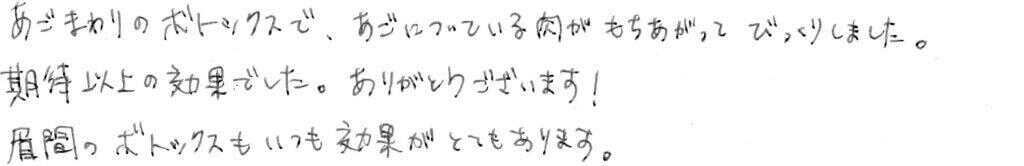 あごまわりのボトックスで、あごについている肉がもちあがってびっくりしました。
期待以上の効果でした。ありがとうございます!
眉間のボトックスもいつも効果がとてもあります。